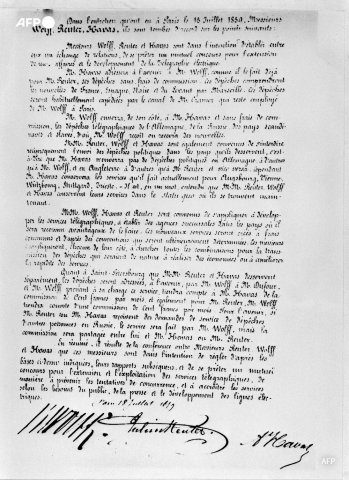 AFP
Dans l'entretien qu'ont eu à Paris le 15 Juillet 1859, Messieurs
Wolff, Reuter, Havas, ils sont tombés d'accord sur les points suivants:
Messieurs Wolff, Reuter et Havas sont dans l'intention d'établir entre
eux un échange de relations, de se prêter un mutuel concours pour l'extension
de leurs affaires et le développement de la Télégraphie électrique.
Mr. Havas
pour Mr. Reuter, ses dépêches sans frais de commission. Ces dépêches comprendront
les nouvelles de France, Espagne, Italie et du Levant par Marseille. Ces dépêches
seront habituellement expédiées par le canal de Mr.
de Mr. Wolff à Paris.
Mr. Wolff enverra, de son côté, à Mr. Havas et sans frais de com-
mission, les dépêches télégraphiques de l'Allemagne, de la Russie, des pays scandi-
naves et slaves, d'où Mr. Wolff reçoit ou recevra des nouvelles.
MMrs. Reuter, Wolff et Havas sont également convenus de s'interdire
réciproquement l'envoi des dépêches politiques dans les pays qu'ils desservent, c'est-
à-dire que Mr. Havas n'enverra pas de dépêches politiques en Allemagne à d'autres
que Mr. Wolff, et en Angleterre à d'autres que Mr. Reuter et
Mr. Havas conservera les services qu'il fait actuellement pour Augsbourg, Vienne,
Wurzbourg, Stuttgard, Trieste. Il est, en un mot, entendu que MMrs. Reuter, Wolff
et Havas conservent leurs services dans le statu quo où ils se trouvent main-
tenant.
MMrs. Wolff, Havas et Reuter sont convenus de s'appliquer à dévelop-
per les services télégraphiques, à établir des agences succursales dans les pays où il
sera reconnu avantageux de le faire. Ces nouveaux services seront créés à frais
communs et d'après des conventions qui seront ultérieurement déterminées. Ils
de leur côté, à chercher toutes les combinaisons pour la trans-
mission des dépêches qui seraient de nature à réaliser des économies ou à améliorer
la rapidité des envois.
Quant à Saint-Pétersbourg que MMrs. Reuter et Havas desservent
séparément, les dépêches seront adressées, à l'avenir, par Mr. Wolff à
et Mr. Wolff prenant à sa charge ce service, tiendra compte à Mr. Havas de la
commission de Cent francs par mois et également pour Mr. Reuter, Mr. Wolff
tiendra compte d'une commission de Cent francs par mois. Pour l'avenir, si
Mr. Reuter ou Mr. Havas reçoivent des demandes de service de dépêches
d'autres personnes en Russie, le service sera fait par Mr. Wolff, mais la
commission sera partagée entre lui et Mr. Havas ou Mr. Reuter.
En résumé, il résulte de la conférence entre Messieurs Reuter, Wolff
et Havas que ces messieurs sont dans l'intention de régler d'après les
bases ci-dessus indiquées, leurs rapports subséquents, et de se prêter un mutuel
concours pour l'extension et l'exploitation des services télégraphiques, de
manière à prévenir les tentatives de concurrence, et à accroître les services
selon les besoins du public, de la presse et le développement des lignes élec-
triques.
Paris 18 Juillet 1859
Wolff Julius Reuter Havas
AFP